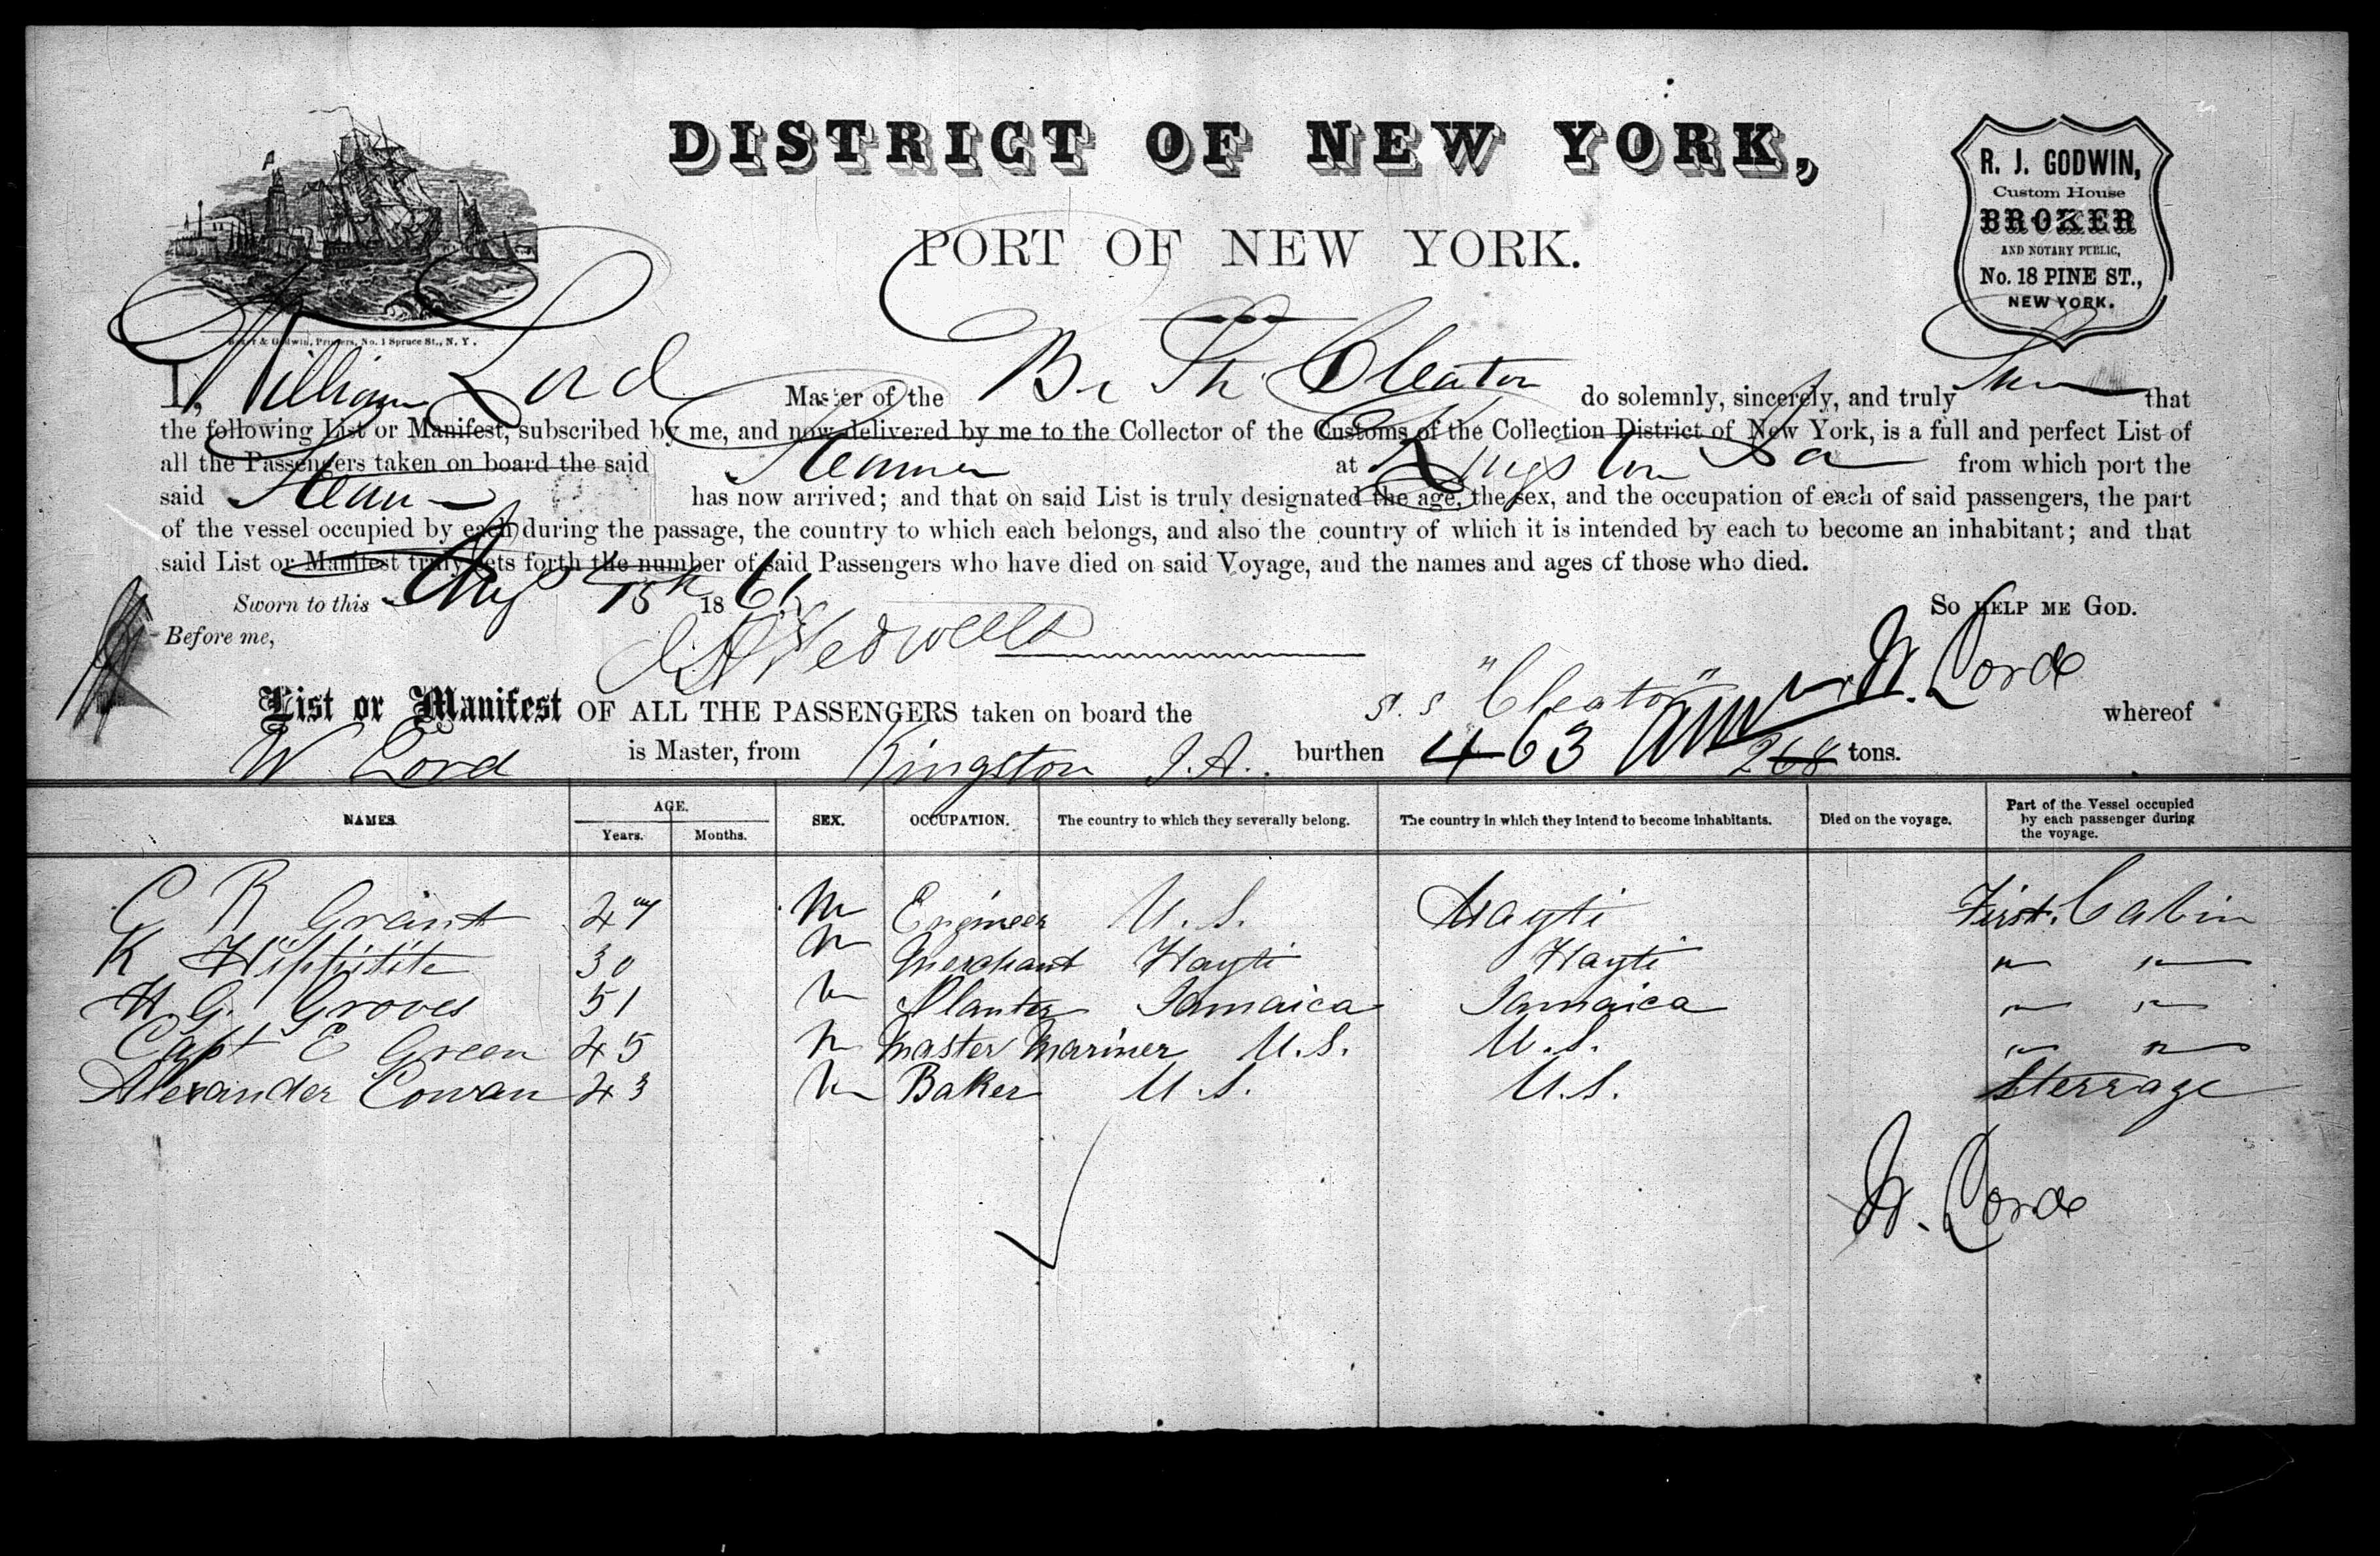 DISTRICT OF NEW YORK,
PORT OF NEW YORK.
R. J. GODWIN,
Custom House
BROKER
AND NOTARY PUBLIC,
No. 18 PINE ST.,
NEW YORK.
& Godwin, Printers, No. 1 Spruce St., N. Y.
I, William Lord Master of the Br Cleator do solemnly, sincerely, and truly that
the following List or Manifest, subscribed by me, and now delivered by me to the Collector of the Customs of the Collection District of New York, is a full and perfect List of
all the Passengers taken on board the said Steamer at Kingston Ja from which port the
said has now arrived; and that on said List is truly designated the age, the sex, and the occupation of each of said passengers, the part
of the vessel occupied by each during the passage, the country to which each belongs, and also the country of which it is intended by each to become an inhabitant; and that
said List or Manifest truly sets forth the number of said Passengers who have died on said Voyage, and the names and ages of those who died.
Sworn to this Aug 18
So HELP ME GOD.
Before me,
W. Lord
List or Manifest OF ALL THE PASSENGERS taken on board the S. S "Cleator" whereof
W Lord is Master, from Kingston J.A. burthen 463 268 tons.
NAMES AGE. Years. Months. SEX. OCCUPATION. The country to which they severally belong. The country in which they intend to become inhabitants. Died on the voyage. Part of the Vessel occupied by each passenger during the voyage.
C R Grant M Engineer U.S. Hayti First Cabin
K 30 M Merchant Hayti Hayti " "
H G. Groves 51 M Planter Jamaica Jamaica " "
Capt E Green 45 M Master Mariner U.S. U.S. " "
Alexander Cowan 43 M Baker U.S. U.S. Sterrage
W. Lord